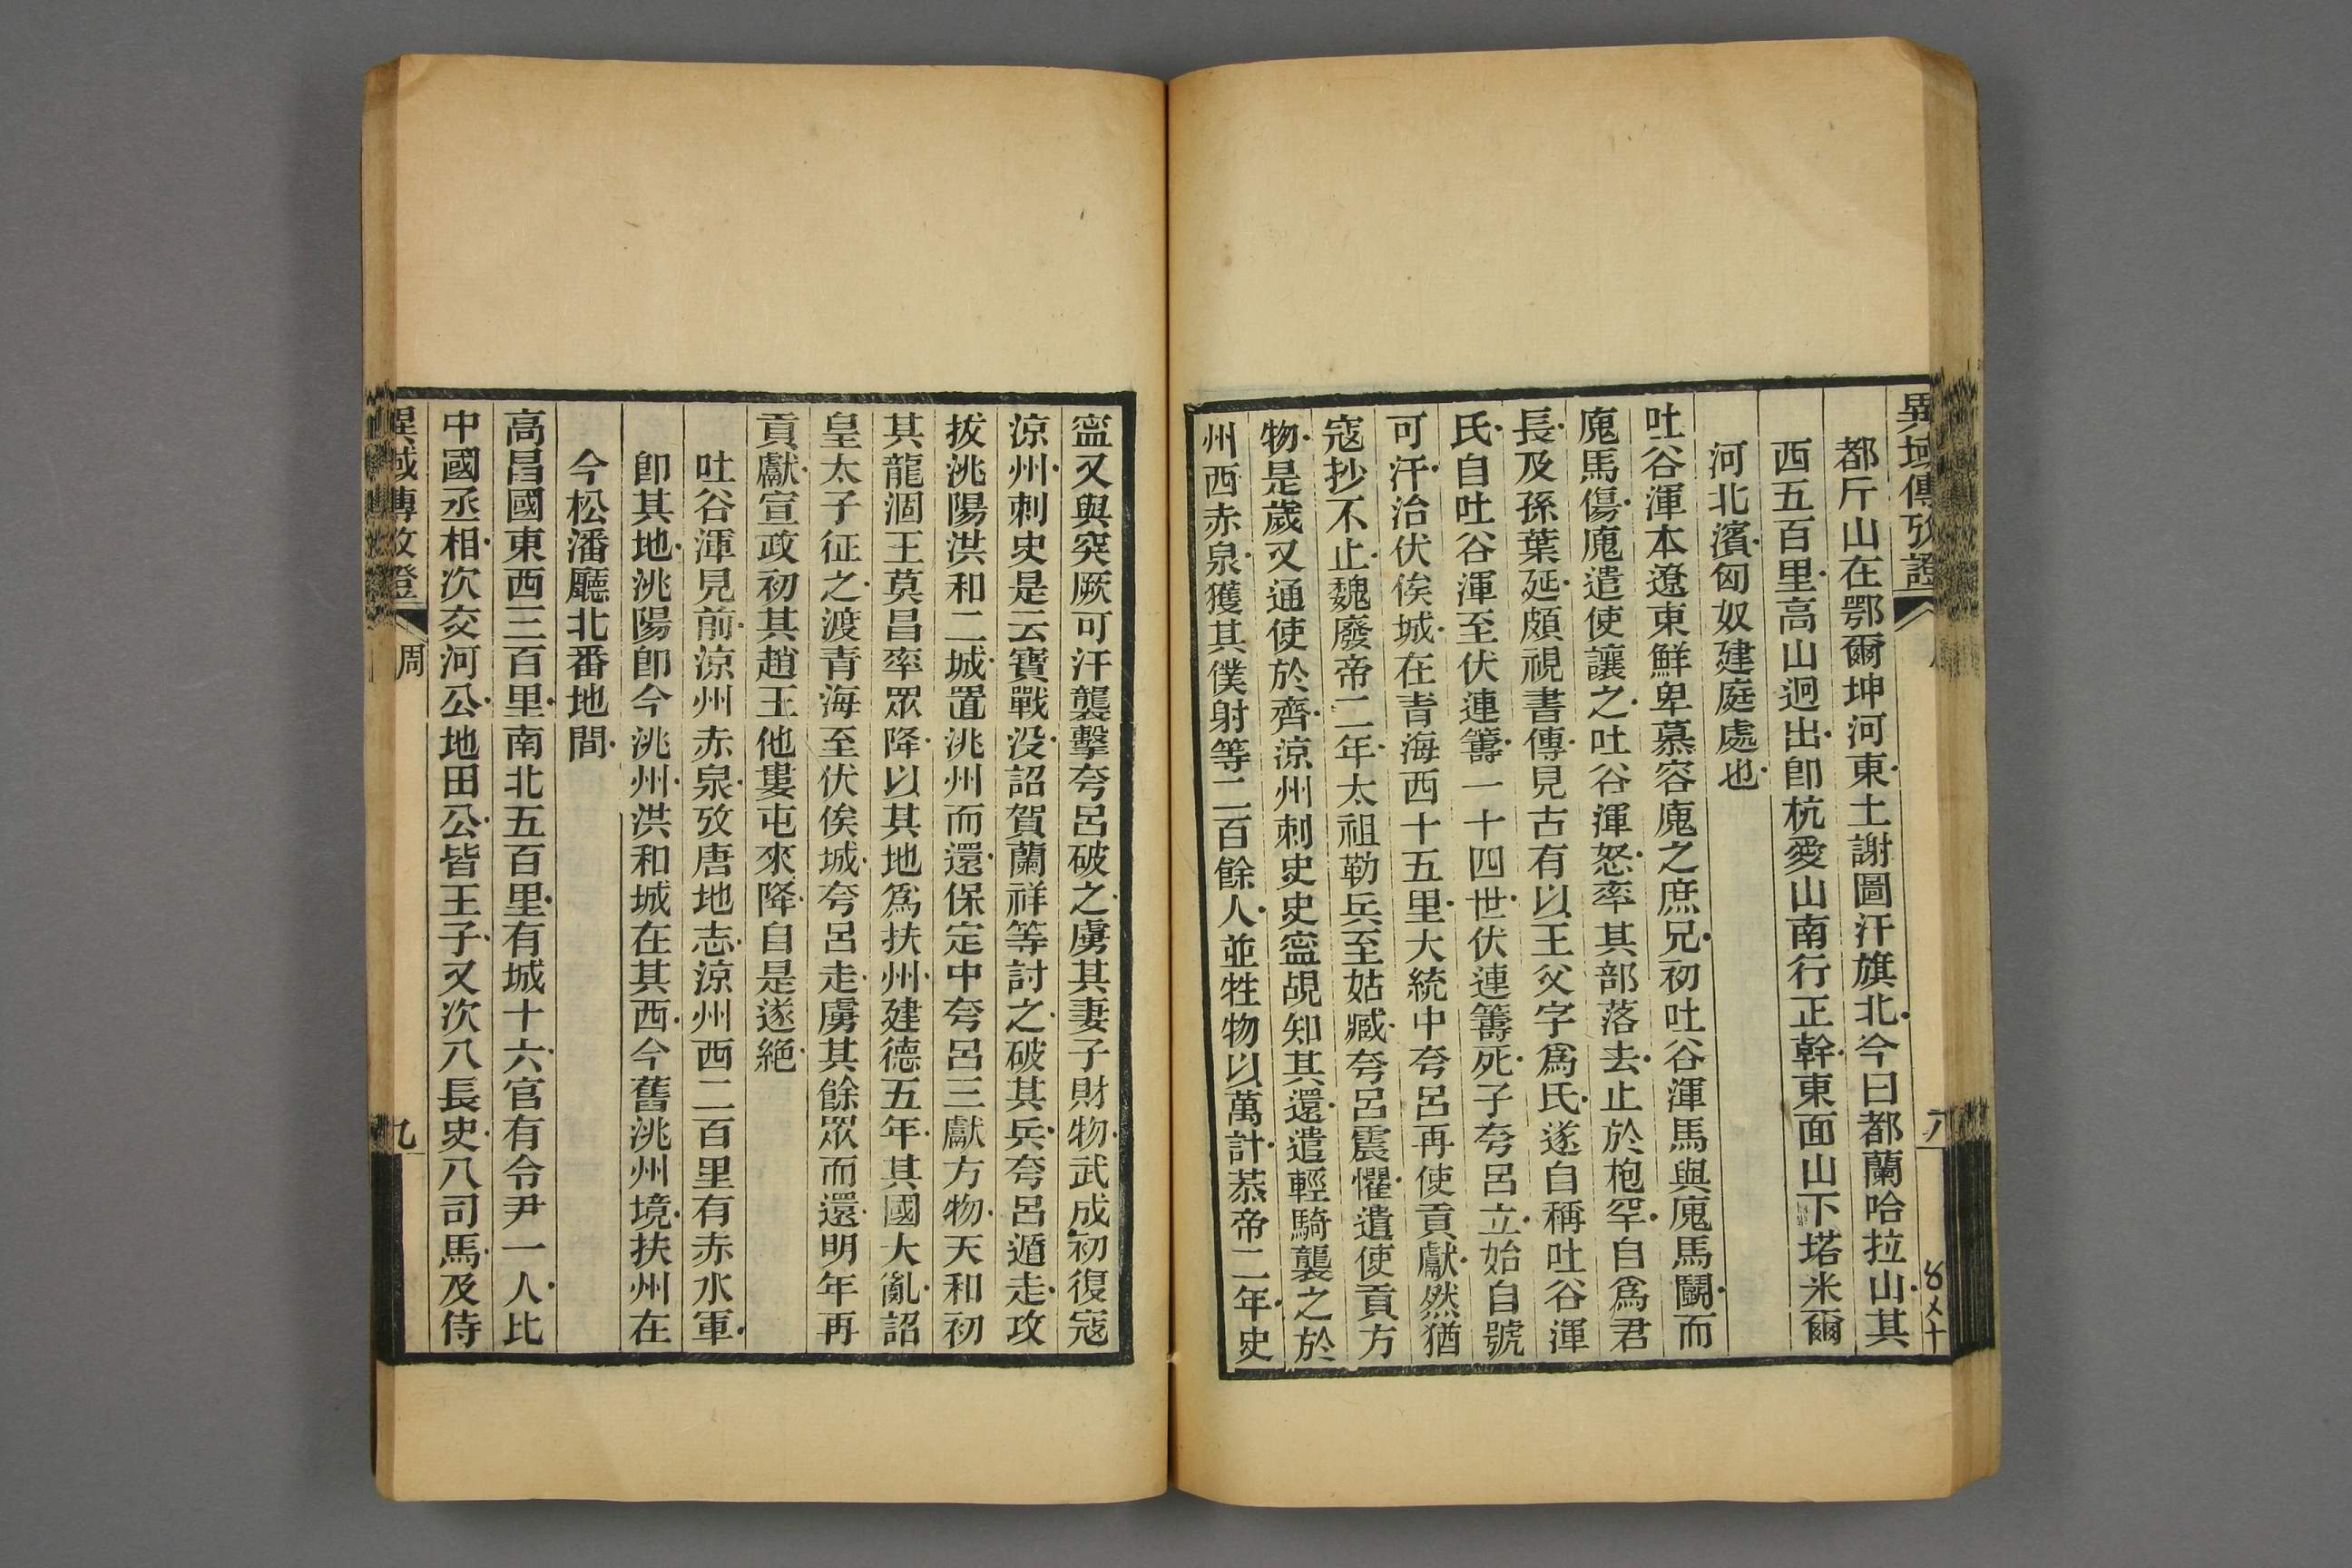 異域傳攷證
八
都斤山在鄂爾坤河東土謝圖汗旗北今曰都蘭哈拉山其
西五百里高山迥出卽杭愛山南行正幹東面山下塔米爾
河北濱匈奴建庭處也
吐谷渾本遼東鮮卑慕容廆之庶兄初吐谷渾馬與廆馬鬬而
廆馬傷廆遣使讓之吐谷渾怒率其部落去止於枹罕自爲君
長及孫葉延頗視書傳見古有以王父字爲氏遂自稱吐谷渾
氏自吐谷渾至伏連籌一十四世伏連籌死子夸呂立始自號
可汗治伏俟城在青海西十五里大統中夸呂再使貢獻然猶
寇抄不止魏廢帝二年太祖勒兵至姑臧夸呂震懼遣使貢方
物是歲又通使於齊涼州刺史史寍覘知其還遣輕騎襲之於
州西赤泉獲其僕射等二百餘人並牲物以萬計恭帝二年史
寍又與突厥可汗襲擊夸呂破之虜其妻子財物武成初復寇
涼州刺史是云寶戰没詔賀蘭祥等討之破其兵夸呂遁走攻
拔洮陽洪和二城置洮州而還保定中夸呂三獻方物天和初
其龍涸王莫昌率眾降以其地爲扶州建德五年其國大亂詔
皇太子征之渡青海至伏俟城夸呂走虜其餘眾而還明年再
貢獻宣政初其趙王他婁屯來降自是遂絶
吐谷渾見前涼州赤泉攷唐地志涼州西二百里有赤水軍
卽其地洮陽卽今洮州洪和城在其西今舊洮州境扶州在
今松潘廳北番地間
高昌國東西三百里南北五百里有城十六官有令尹一人比
中國丞相次交河公地田公皆王子又次八長史八司馬及侍
異域傳攷證
周
九